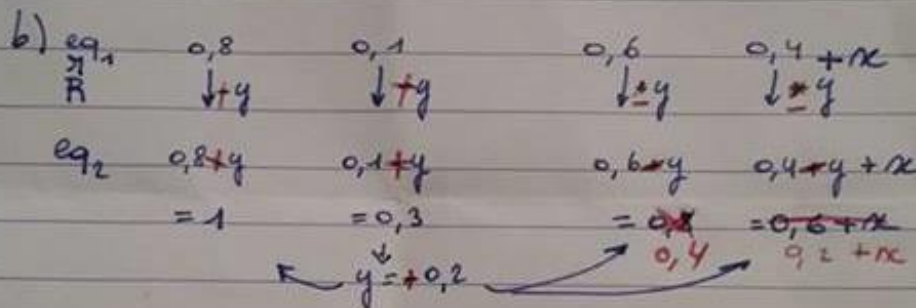 b) eq₁ 0,8 0,1 0,6 0,4 + x
R ↓+y ↓+y ↓-y ↓-y
eq₂ 0,8+y 0,1+y 0,6-y 0,4-y + x
= 1 = 0,3 = 0,8 = 0,6 + x
0,4 0,2 + x
y = +0,2